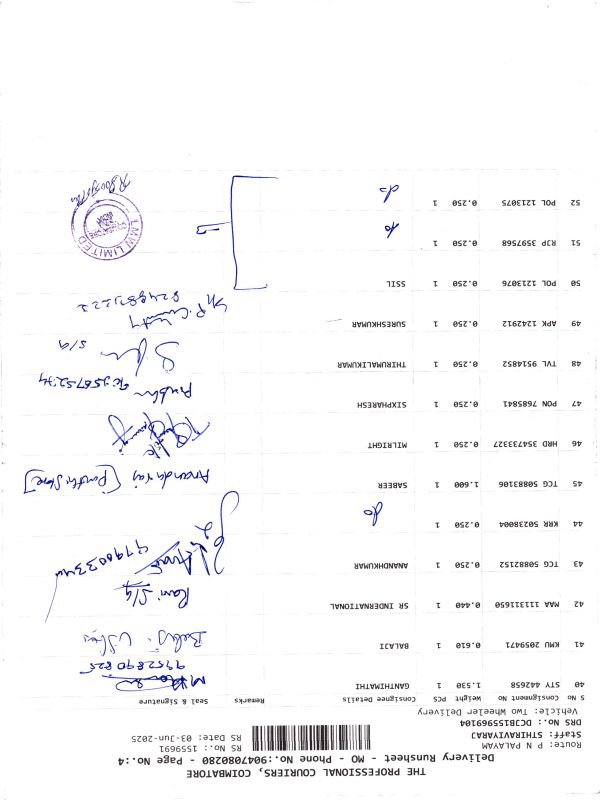 THE PROFESSIONAL COURIERS, COIMBATORE
Delivery Runsheet - MO - Phone No.:9047080280 - Page No.:4
Route: P N PALAYAM
Staff: STHIRAVIYARAJ
DRS No.: DCB1155969104
Vehicle: Two Wheeler Delivery
RS No.: 1559691
RS Date: 03-Jun-2025
S No Consignment No Weight PCS Consignee Details Remarks Seal & Signature
40 STY 442658 1.530 1 GANTHIMATHI
9952890825
41 KMU 2059471 0.610 1 BALAJI
42 MAA 111311650 0.440 1 SR INDERNATIONAL
Ravi S/g
43 TCG 50882152 0.250 1 ANANDHKUMAR
44 KRR 50238004 0.250 1 do
45 TCG 50883106 1.600 1 SABEER
46 HRD 354733327 0.250 1 MILRIGHT
47 PON 7685841 0.250 1 SIXPHARESH
48 TVL 9514852 0.250 1 THIRUMALIKUMAR
S/g
49 APK 1242912 0.250 1 SURESHKUMAR
50 POL 1213076 0.250 1 SSIL
51 RJP 3597568 0.250 1 do
52 POL 1213075 0.250 1 do
LMW LIMITED